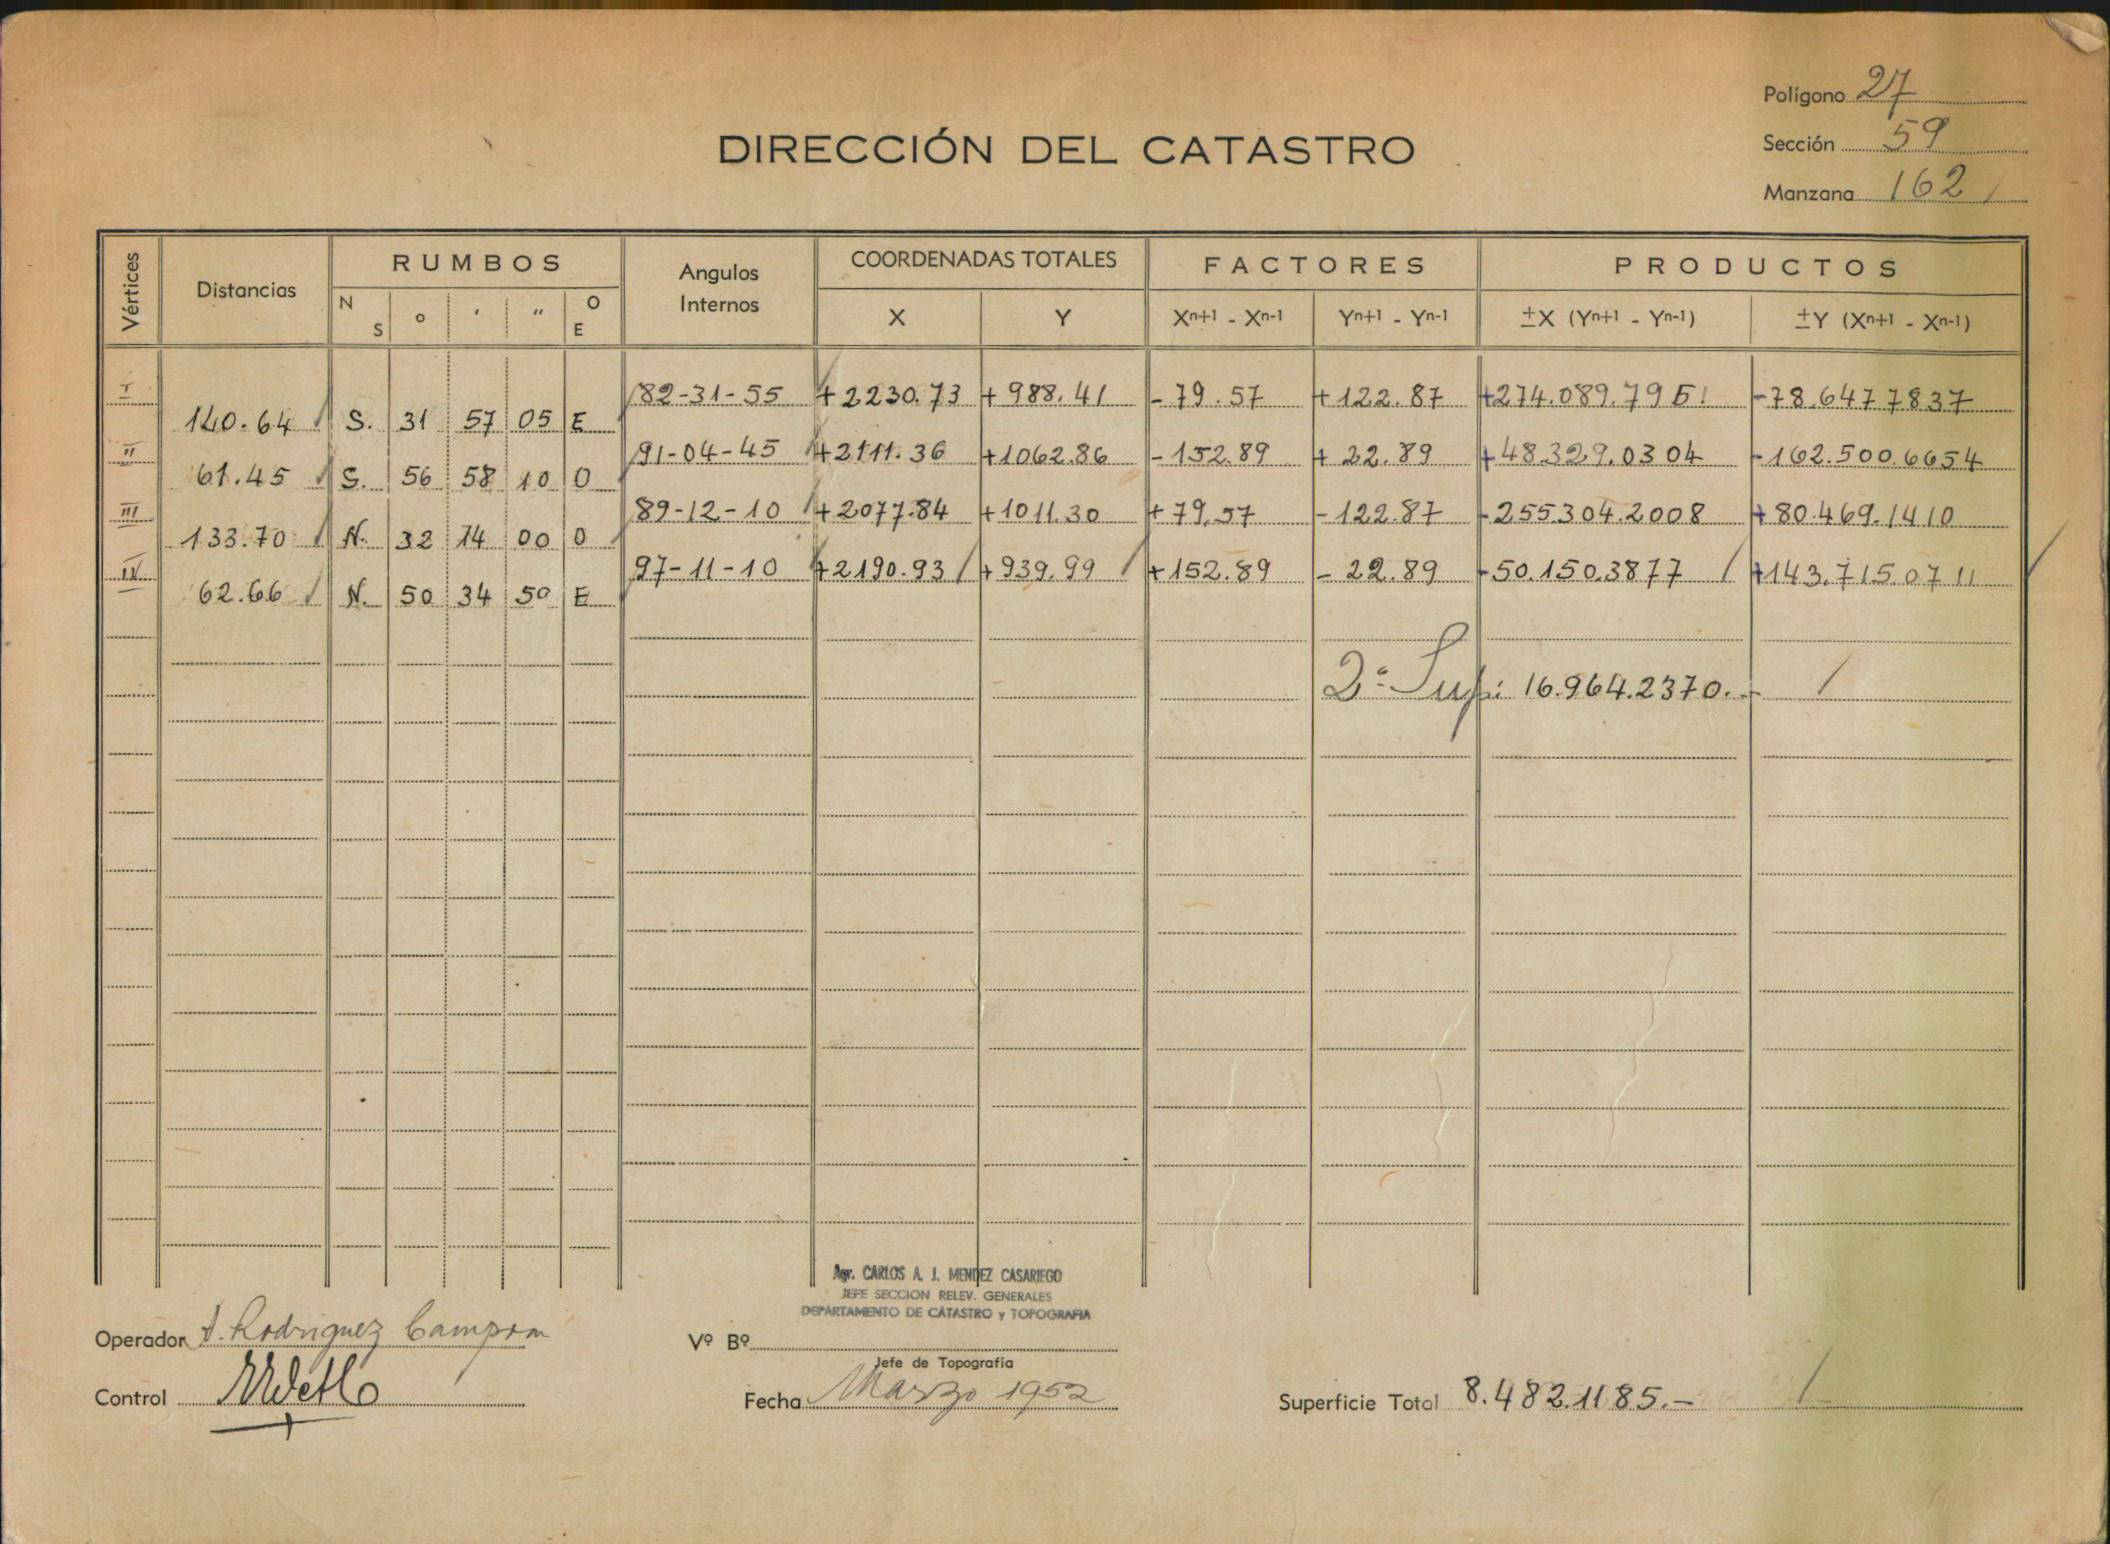 Polígono 27
Sección 59
Manzana 162
DIRECCIÓN DEL CATASTRO
Vértices Distancias RUMBOS Angulos Internos COORDENADAS TOTALES FACTORES PRODUCTOS
N S o ‘ “ O E X Y Xn+1 - Xn-1 Yn+1 - Yn-1 ±X (Yn+1 - Yn-1) ±Y (Xn+1 - Xn-1)
I 82-31-55 +2230.73 +988.41 -79.57 +122.87 +274.089.7951 -78.6477837
140.64 S. 31 57 05 E
II 91-04-45 +2111.36 +1062.86 -152.89 +22.89 +48329.0304 -162.500.6654
61.45 S. 56 58 10 O
III 89-12-10 +2077.84 +1011.30 +79.57 -122.87 -255304.2008 +80.469.1410
133.70 N. 32 14 00 O
IV 97-11-10 +2190.93 +939.99 +152.89 -22.89 -50.150.3877 +143.715.0711
62.66 N. 50 34 50 E
2ª Sup: 16.964.2370.-
Agr. CARLOS A. J. MENDEZ CASARIEGO
JEFE SECCION RELEV. GENERALES
DEPARTAMENTO DE CATASTRO y TOPOGRAFIA
Operador A. Rodriguez
Vº Bº
Jefe de Topografía
Control
Fecha Marzo 1952
Superficie Total 8.482.1185.-